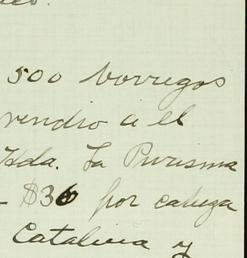 500 borregos
vendio a el
Hda. La Purisma
$36 por cabeza
Catalina y